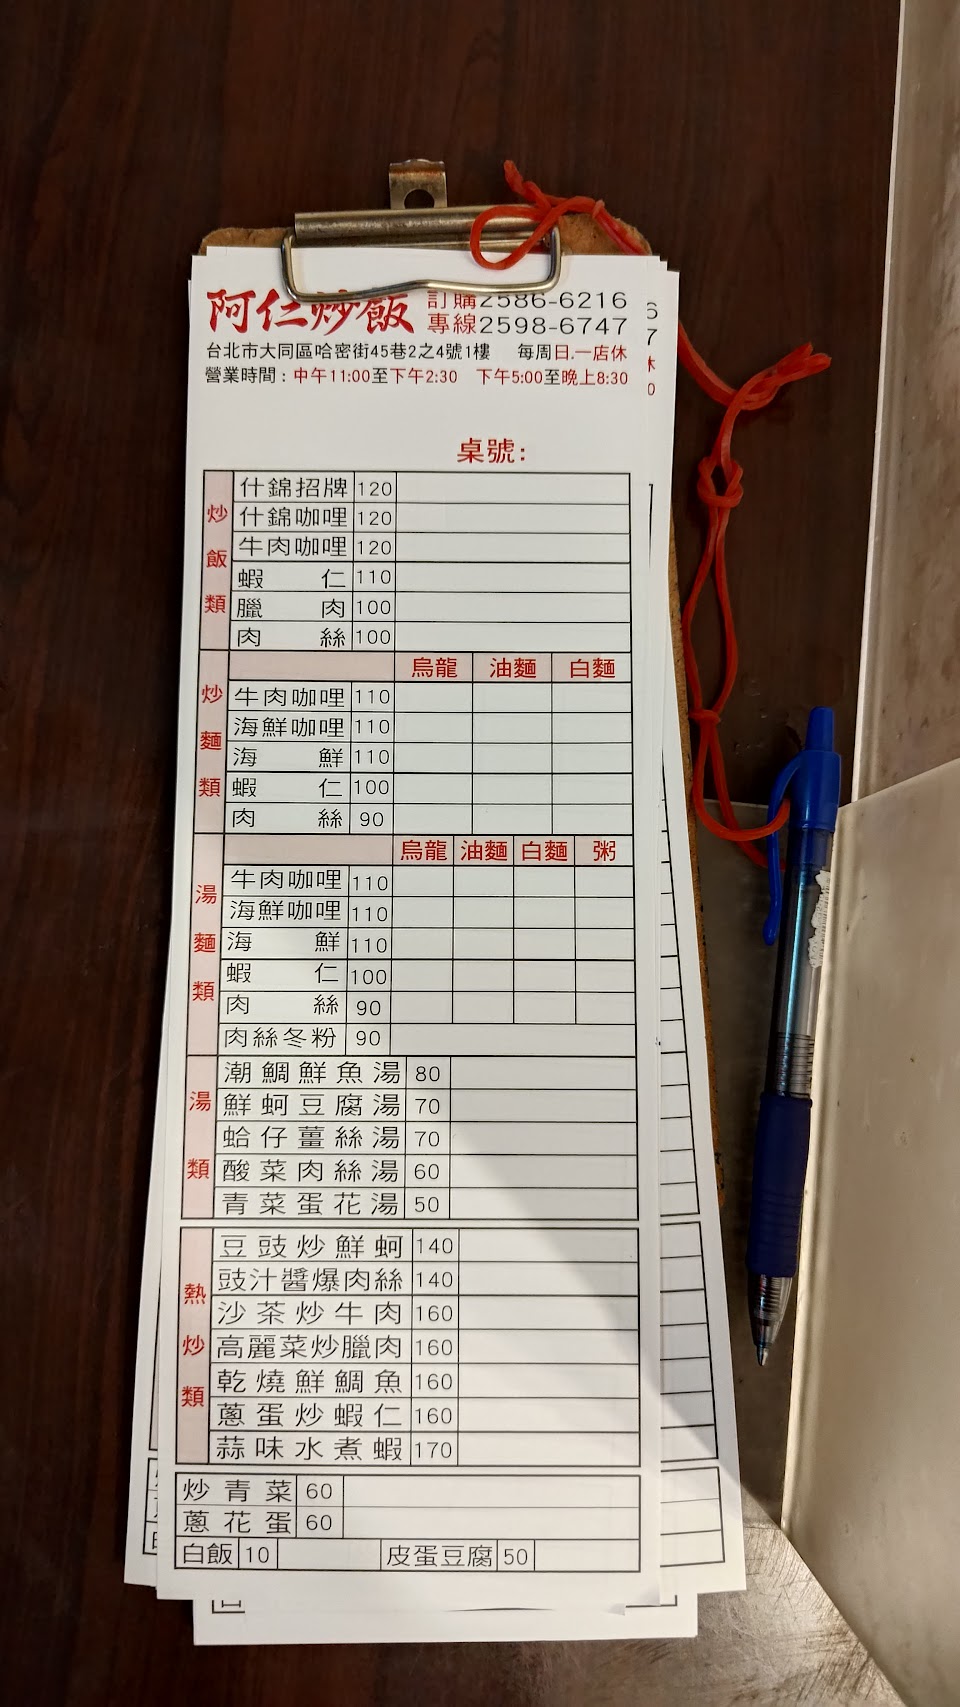 阿仁炒飯 訂購2586-6216
專線2598-6747
台北市大同區哈密街45巷2之4號1樓 每周日.一店休
營業時間：中午11:00至下午2:30 下午5:00至晚上8:30
桌號：
炒飯類
什錦招牌 120
什錦咖哩 120
牛肉咖哩 120
蝦仁 110
臘肉 100
肉絲 100
炒麵類
烏龍 油麵 白麵
牛肉咖哩 110
海鮮咖哩 110
海鮮 110
蝦仁 100
肉絲 90
湯麵類
烏龍 油麵 白麵 粥
牛肉咖哩 110
海鮮咖哩 110
海鮮 110
蝦仁 100
肉絲 90
肉絲冬粉 90
湯類
潮鯛鮮魚湯 80
鮮蚵豆腐湯 70
蛤仔薑絲湯 70
酸菜肉絲湯 60
青菜蛋花湯 50
熱炒類
豆豉炒鮮蚵 140
豉汁醬爆肉絲 140
沙茶炒牛肉 160
高麗菜炒臘肉 160
乾燒鮮鯛魚 160
蔥蛋炒蝦仁 160
蒜味水煮蝦 170
炒青菜 60
蔥花蛋 60
白飯 10 皮蛋豆腐 50